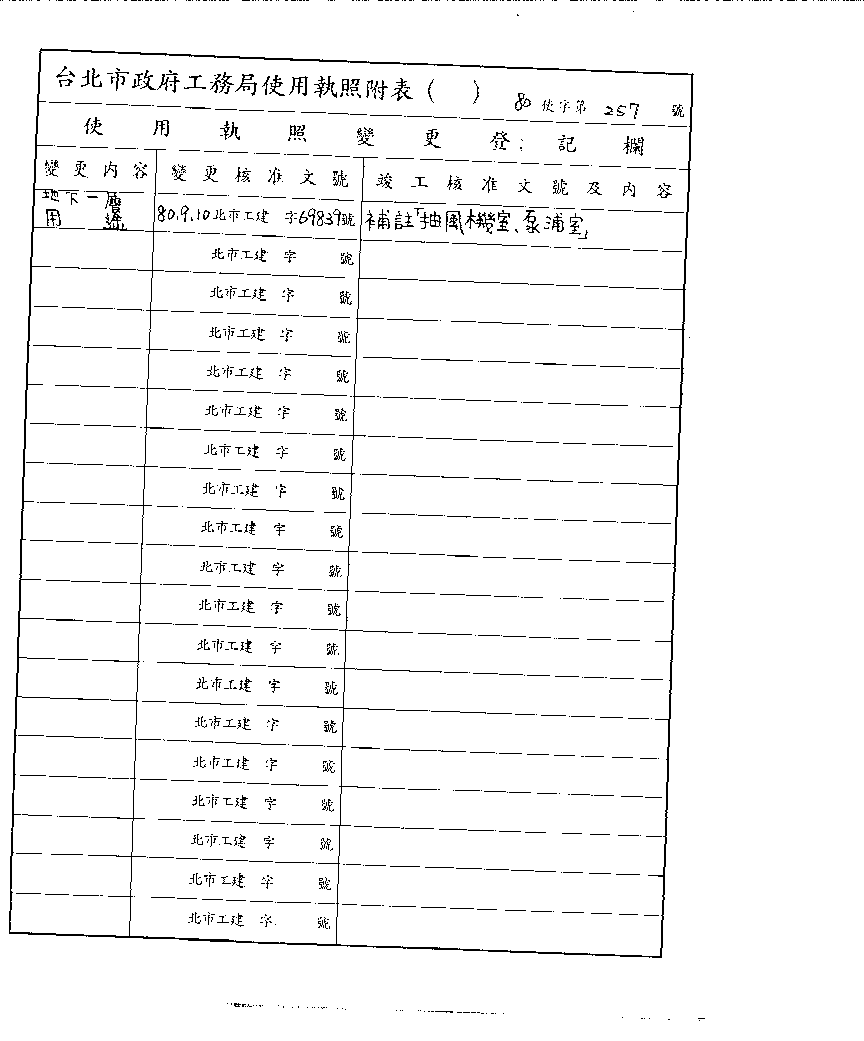 台北市政府工務局使用執照附表( ) 80 使字第 257 號
使用執照變更登記欄
變更內容 變更核准文號 竣工核准文號及內容
地下一層 80.9.10北市工建 字69839號 補註「抽風機室、泵浦室」
用途
北市工建 字 號
北市工建 字 號
北市工建 字 號
北市工建 字 號
北市工建 字 號
北市工建 字 號
北市工建 字 號
北市工建 字 號
北市工建 字 號
北市工建 字 號
北市工建 字 號
北市工建 字 號
北市工建 字 號
北市工建 字 號
北市工建 字 號
北市工建 字 號
北市工建 字 號
北市工建 字 號